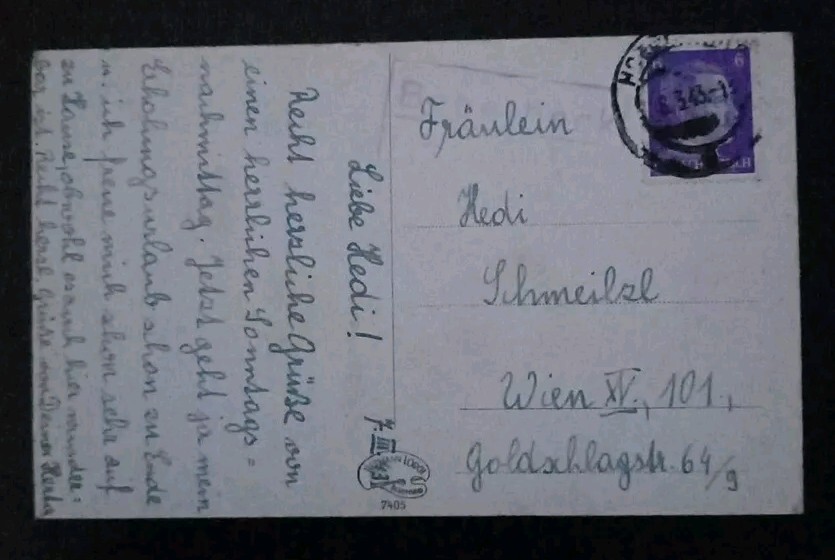 7. III. 43.
Liebe Hedi!
Recht herzliche Grüße von
einen herrlichen Sonntags=
nachmittag. Jetzt geht ja mein
Erholungsurlaub schon zu Ende
u. ich freue mich schon sehr auf
zu Hause, obwohl es auch hier wunder=
bar ist. Recht herzl. Grüße von Deiner Herta
Fräulein
Hedi
Schmeilzl
Wien XV., 101,
Goldschlagstr. 64/9
7405
6